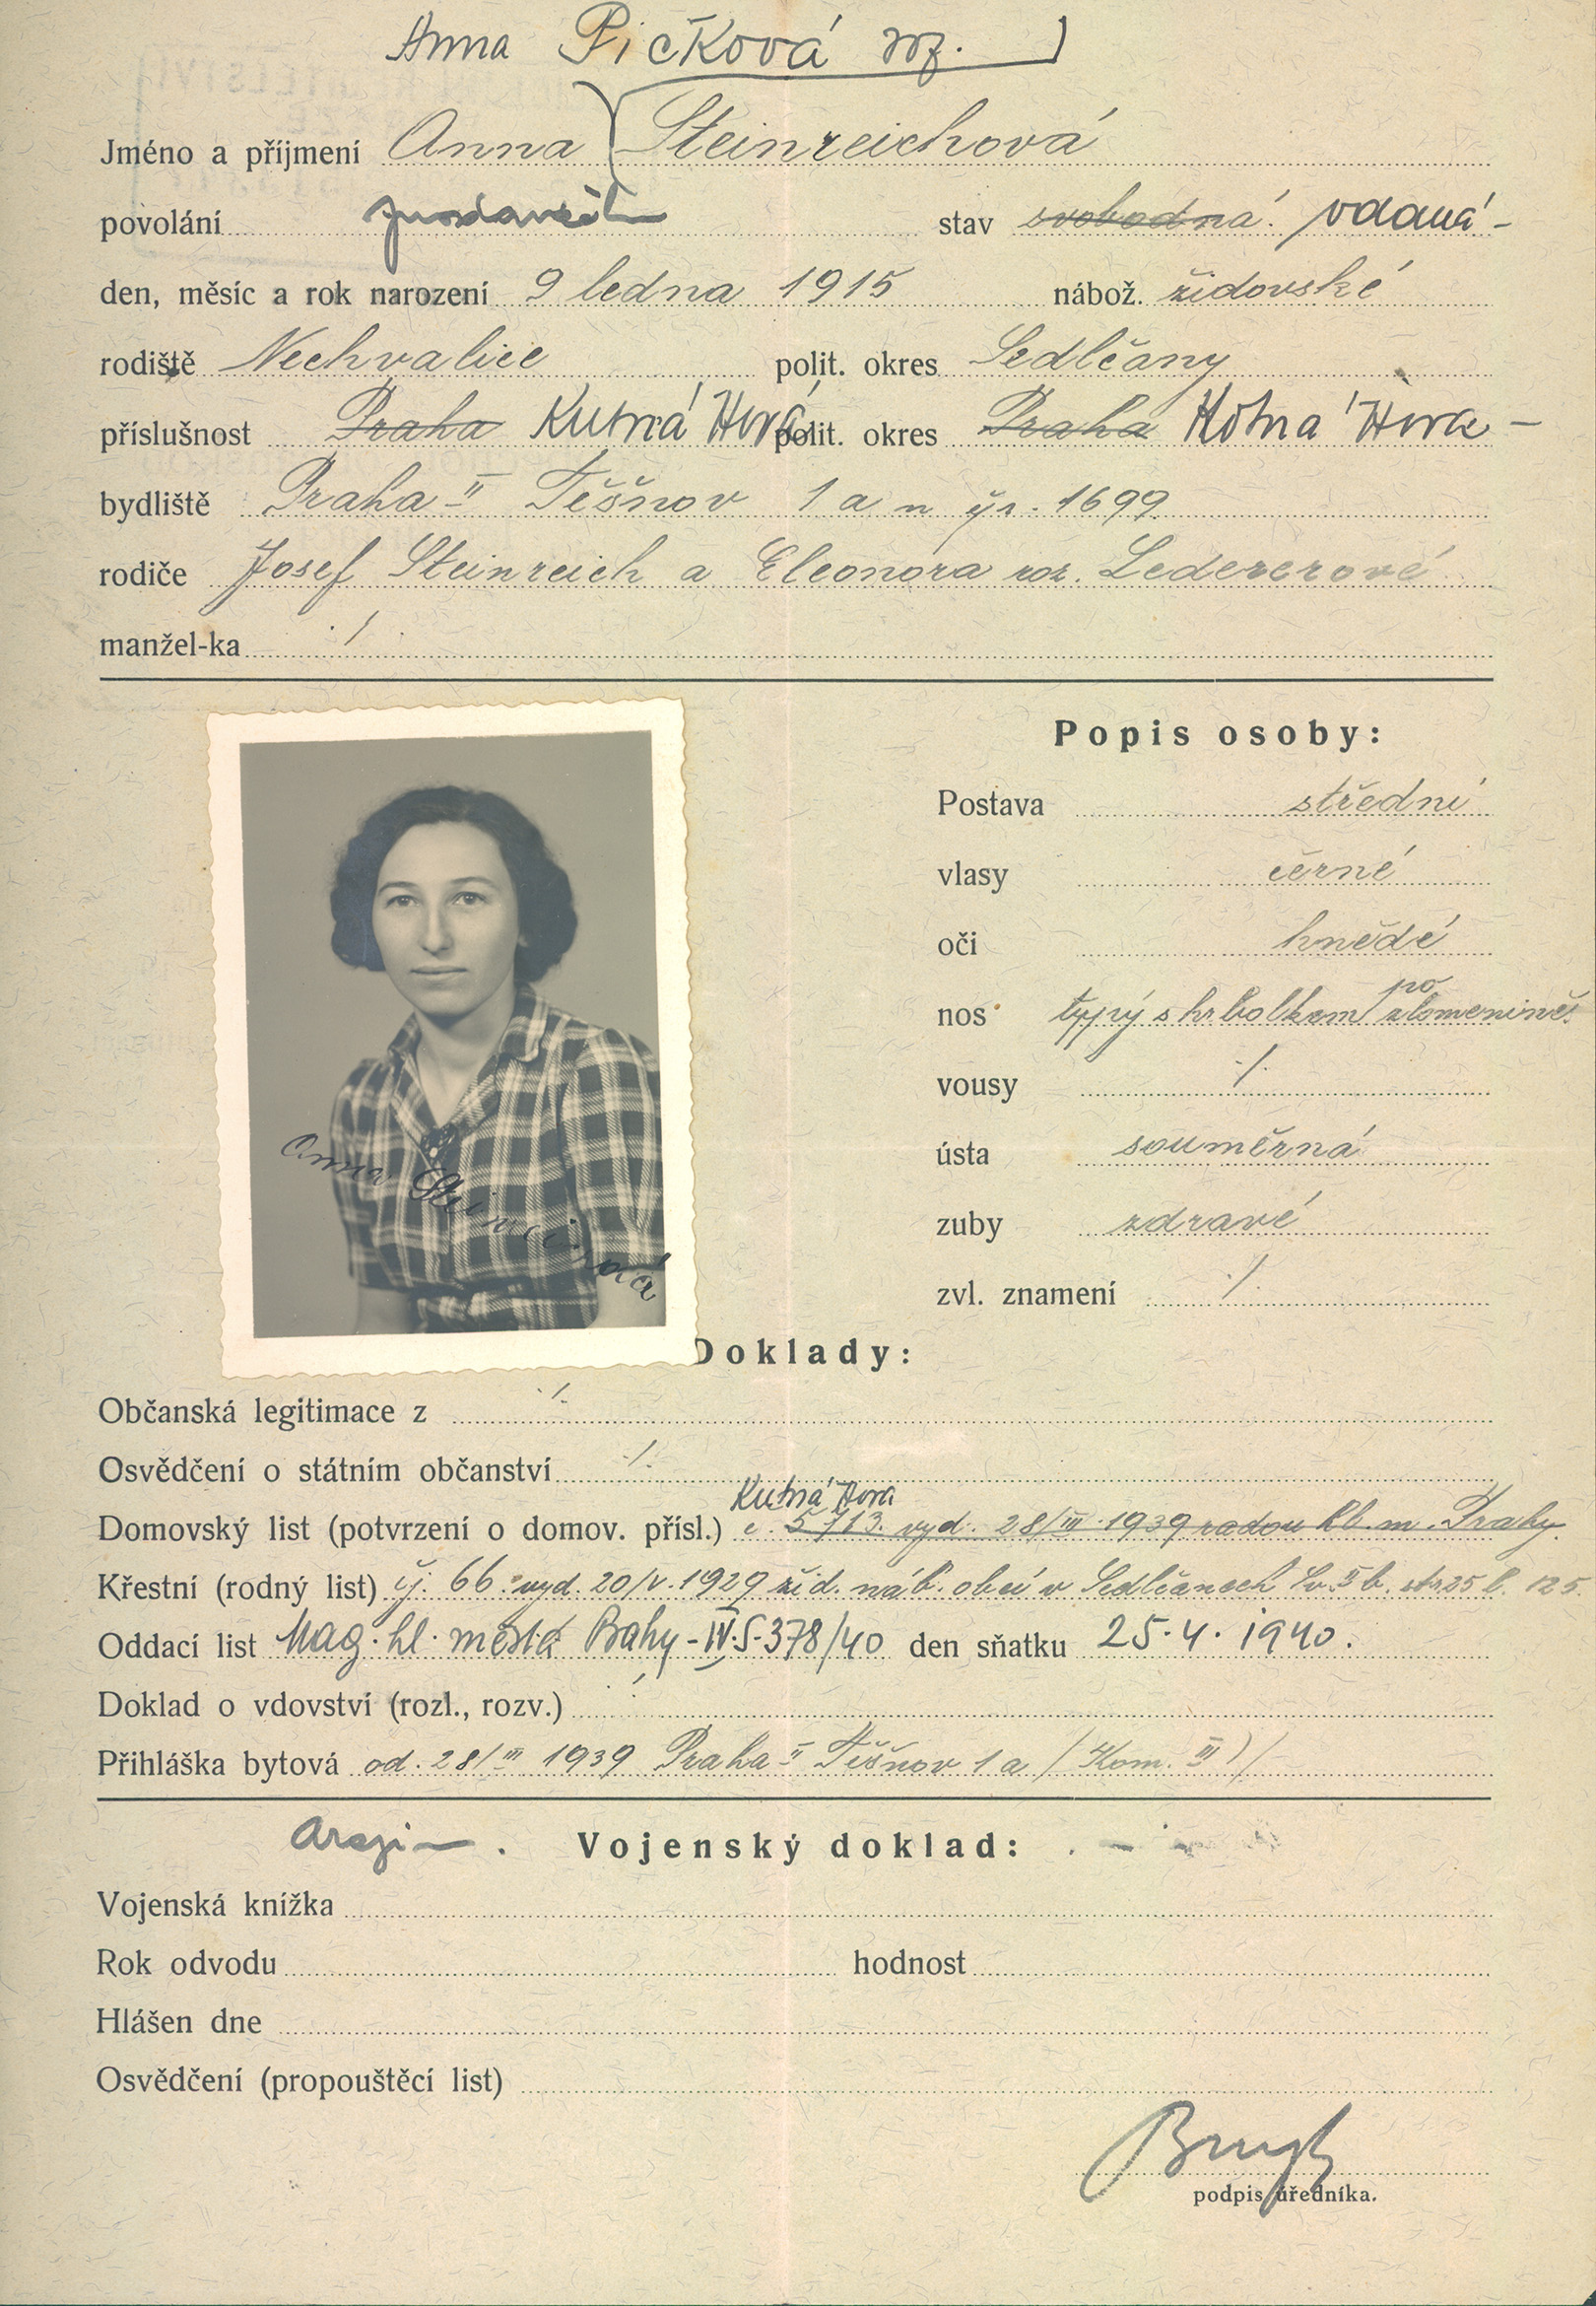 Anna Pičková roz.
Jméno a příjmení Anna Steinreichová
povolání stav svobodná. vdaná -
den, měsíc a rok narození 9 ledna 1915 nábož. židovské
rodiště Nechvalice polit. okres Sedlčany
příslušnost Praha Kutná Hora polit. okres Praha Hora -
bydliště Praha II Těšnov 1 a n čp. 1699
rodiče Josef Steinreich a Eleonora roz. Ledererové
manžel-ka ./.
Popis osoby:
Postava střední
vlasy černé
oči hnědé
nos s hrbolkem po zlomenině.
vousy ./.
ústa souměrná
zuby zdravé
zvl. znamení ./.
Anna
Doklady:
Občanská legitimace z ./.
Osvědčení o státním občanství ./.
Kutná Hora
Domovský list (potvrzení o domov. přísl.) č. 5713. vyd. 28/III. 1939 radou hl. m. Prahy
Křestní (rodný list) čj. 66. vyd. 20/V. 1929 žid. náb. obcí v Sedlčanech str. 25 125
Oddací list Mag. hl. města Prahy - IV. S-378/40 den sňatku 25. 4. 1940.
Doklad o vdovství (rozl., rozv.)
Přihláška bytová od. 28/III 1939 Praha II Těšnov 1 a / Kom. III) /
Vojenský doklad:
Vojenská knížka
Rok odvodu hodnost
Hlášen dne
Osvědčení (propouštěcí list)
podpis úředníka.